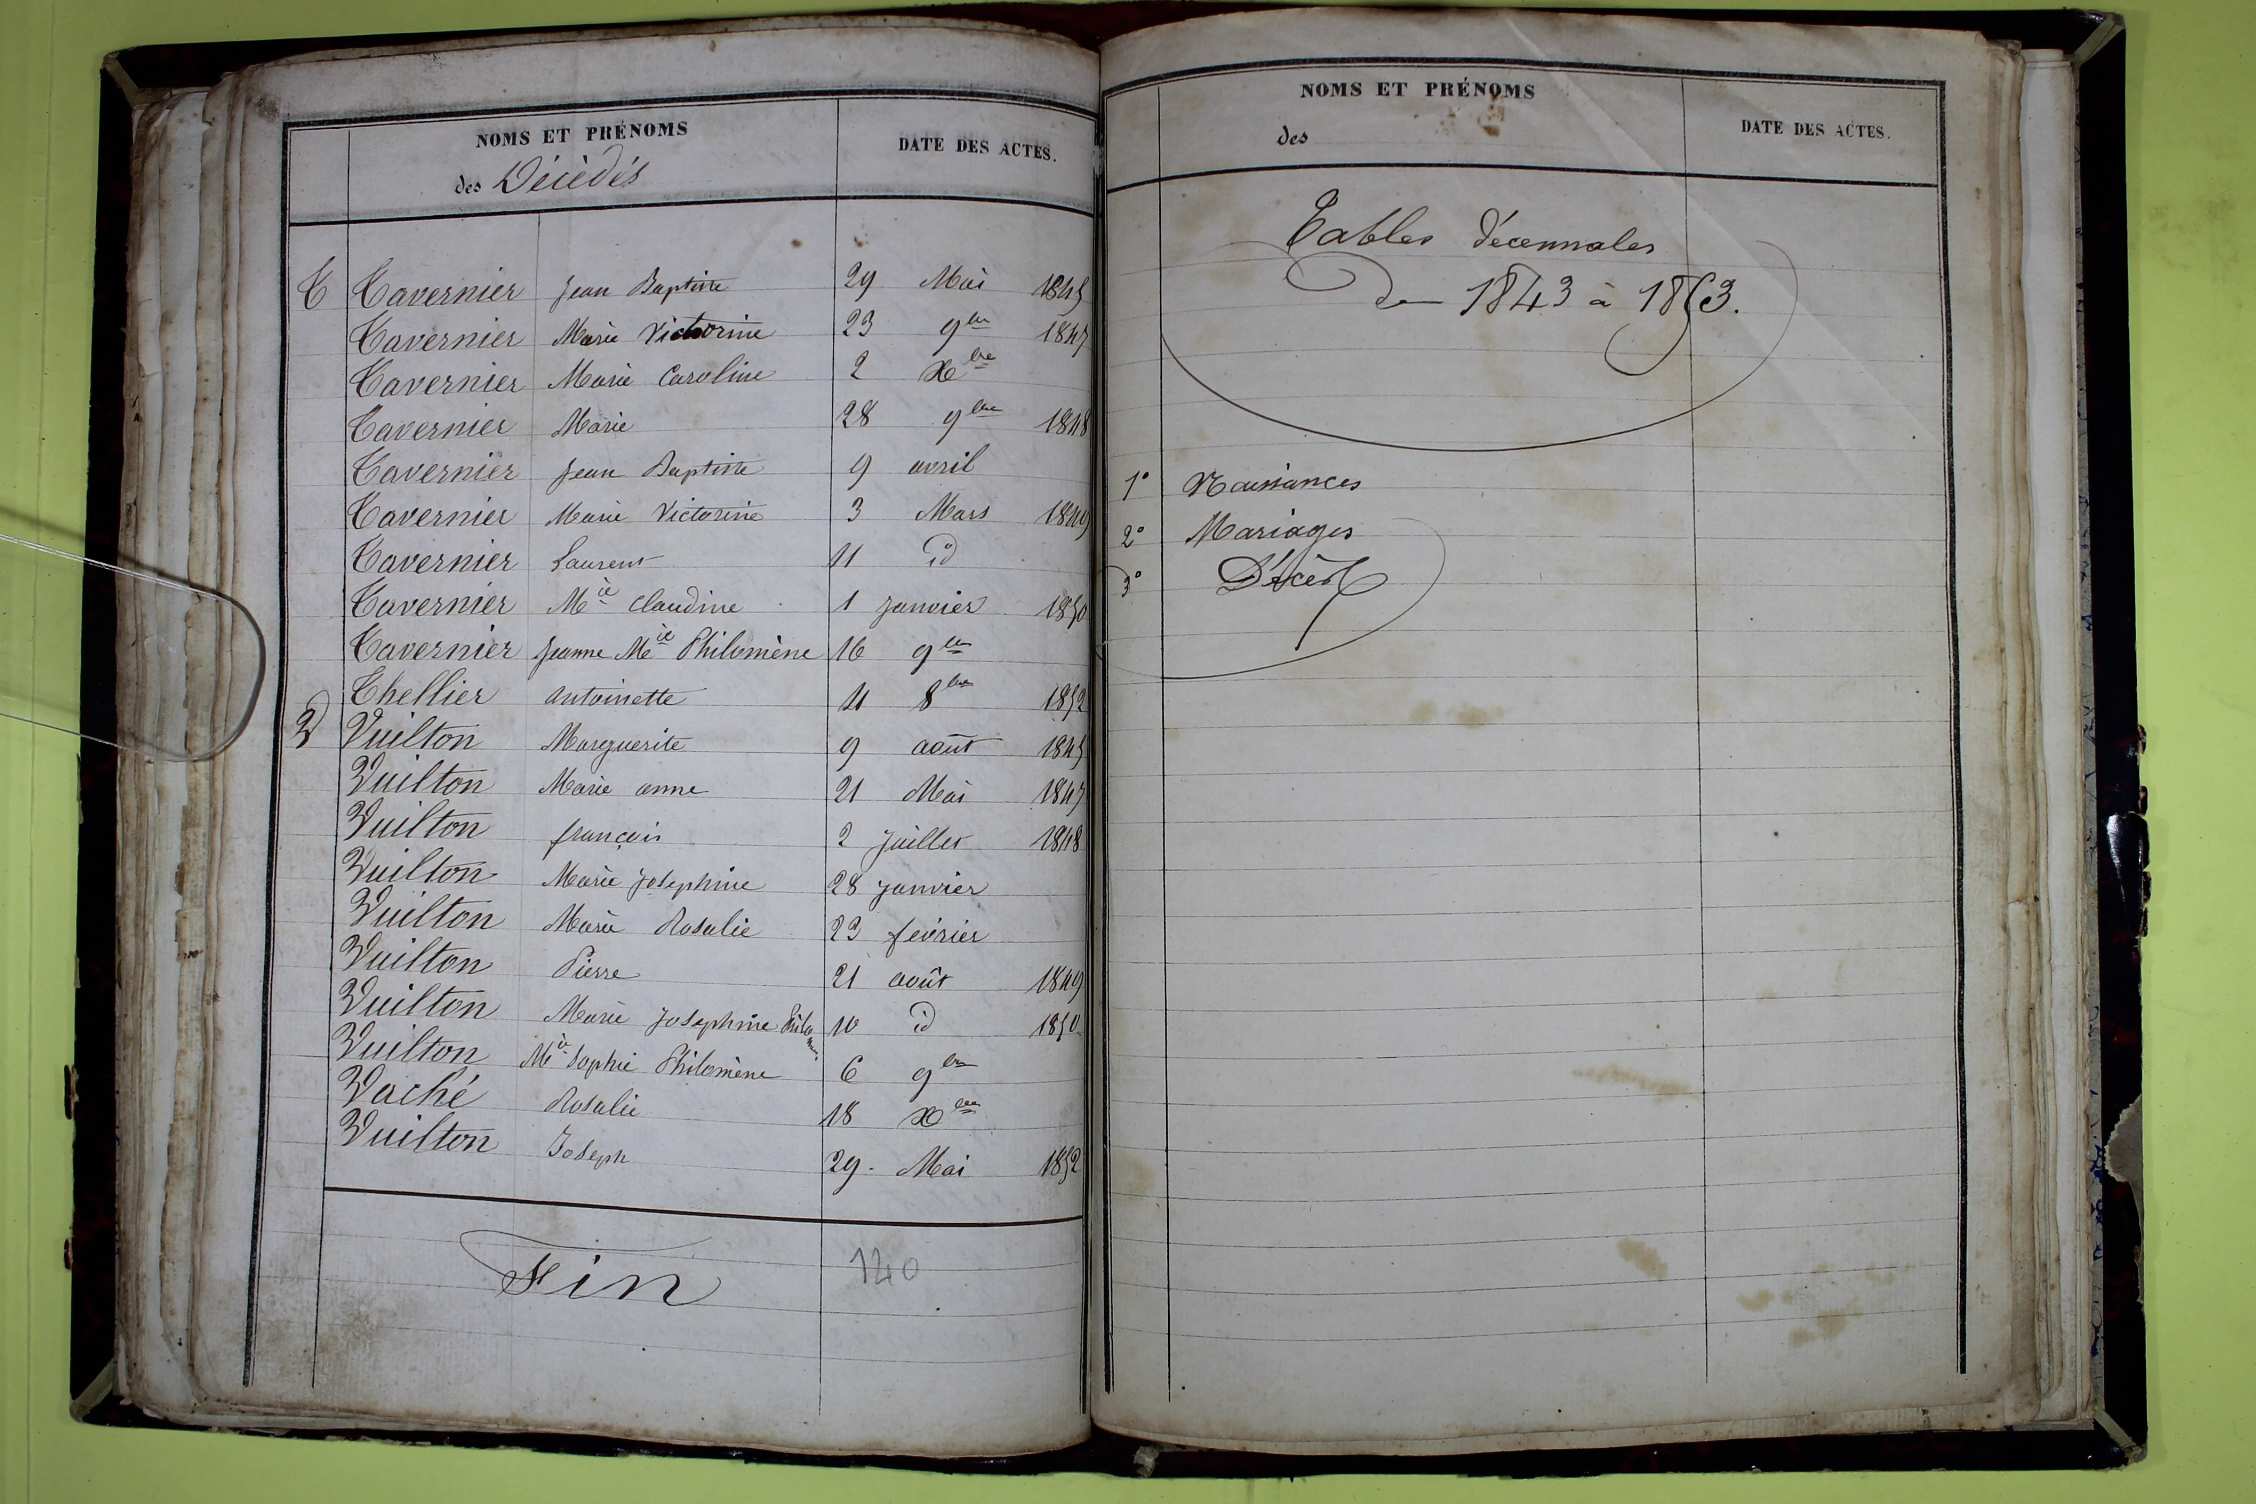 NOMS ET PRÉNOMS
DATE DES ACTES.
des Décédés
T Tavernier Jean Baptiste 29 Mai 1845
Tavernier Marie Victorine 23 9bre 1847
Tavernier Marie Caroline 2 Xbre
Tavernier Marie 28 9bre 1848
Tavernier Jean Baptiste 9 avril
Tavernier Marie Victorine 3 Mars 1849
Tavernier Laurent 11 id
Tavernier Mie Claudine 1 Janvier 1850
Tavernier Jeanne Mie Philomène 16 9bre
Thellier Antoinette 11 8bre 1852
V Vuilton Marguerite 9 août 1845
Vuilton Marie anne 21 Mai 1847
Vuilton françois 2 Juillet 1848
Vuilton Marie Joséphine 28 Janvier
Vuilton Marie Rosalie 23 février
Vuilton Pierre 21 août 1849
Vuilton Marie Joséphine Philomène 10 id 1850
Vuilton Mie Sophie Philomène 6 9bre
Vaché Rosalie 18 Xbre
Vuilton Joseph 29. Mai 1852
Fin
140
NOMS ET PRÉNOMS
des
DATE DES ACTES.
Tables décennales
De 1843 à 1853.
1° Naissances
2° Mariages
3° Décès